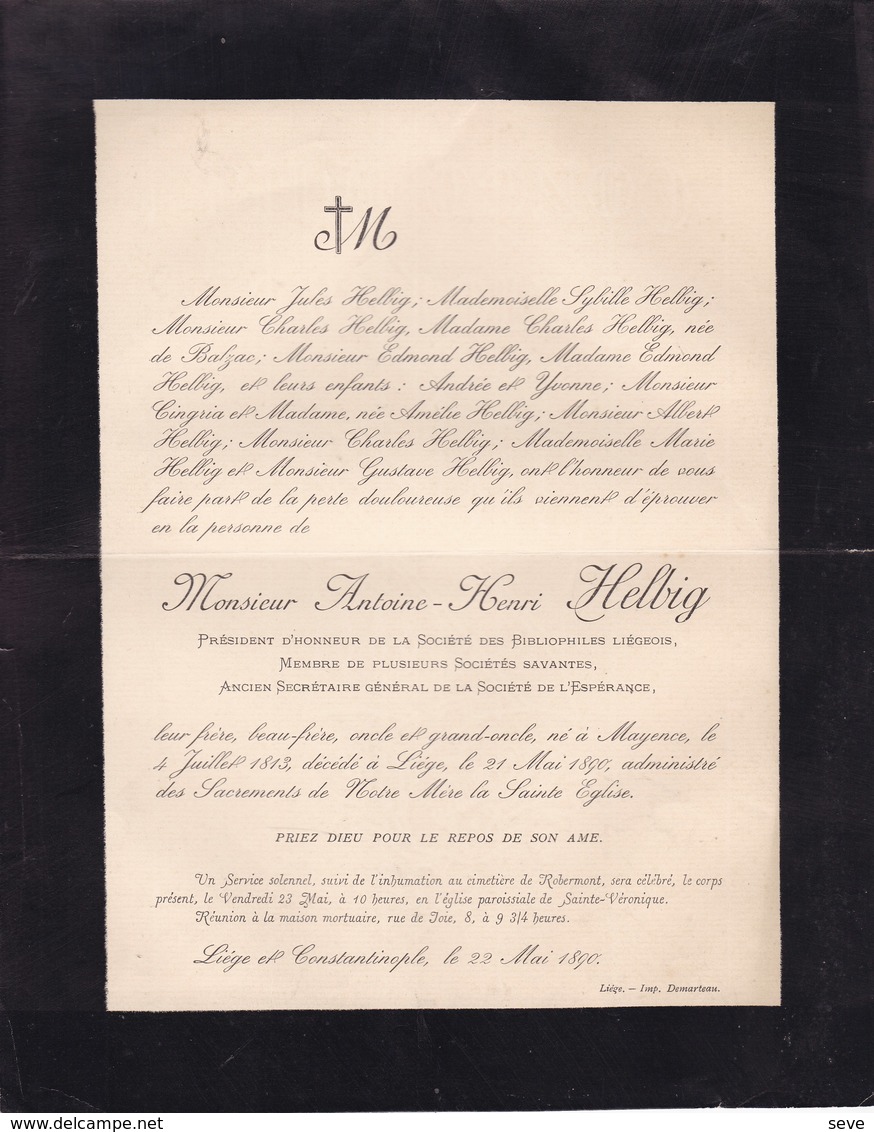 M
Monsieur Jules Helbig; Mademoiselle Sybille Helbig;
Monsieur Charles Helbig, Madame Charles Helbig, née
de Balzac; Monsieur Edmond Helbig, Madame Edmond
Helbig, et leurs enfants : Andrée et Yvonne; Monsieur
Cingria et Madame, née Amélie Helbig; Monsieur Albert
Helbig; Monsieur Charles Helbig; Mademoiselle Marie
Helbig et Monsieur Gustave Helbig, ont l'honneur de vous
faire part de la perte douloureuse qu'ils viennent d'éprouver
en la personne de
Monsieur Antoine-Henri Helbig
Président d'honneur de la Société des Bibliophiles liégeois,
Membre de plusieurs Sociétés savantes,
Ancien Secrétaire général de la Société de l'Espérance,
leur frère, beau-frère, oncle et grand-oncle, né à Mayence, le
4 Juillet 1813, décédé à Liége, le 21 Mai 1890, administré
des Sacrements de Notre Mère la Sainte Eglise.
PRIEZ DIEU POUR LE REPOS DE SON AME.
Un Service solennel, suivi de l'inhumation au cimetière de Robermont, sera célébré, le corps
présent, le Vendredi 23 Mai, à 10 heures, en l'église paroissiale de Sainte-Véronique.
Réunion à la maison mortuaire, rue de Joie, 8, à 9 3/4 heures.
Liége et Constantinople, le 22 Mai 1890.
Liége. — Imp. Demarteau.
delcampe.net
seve